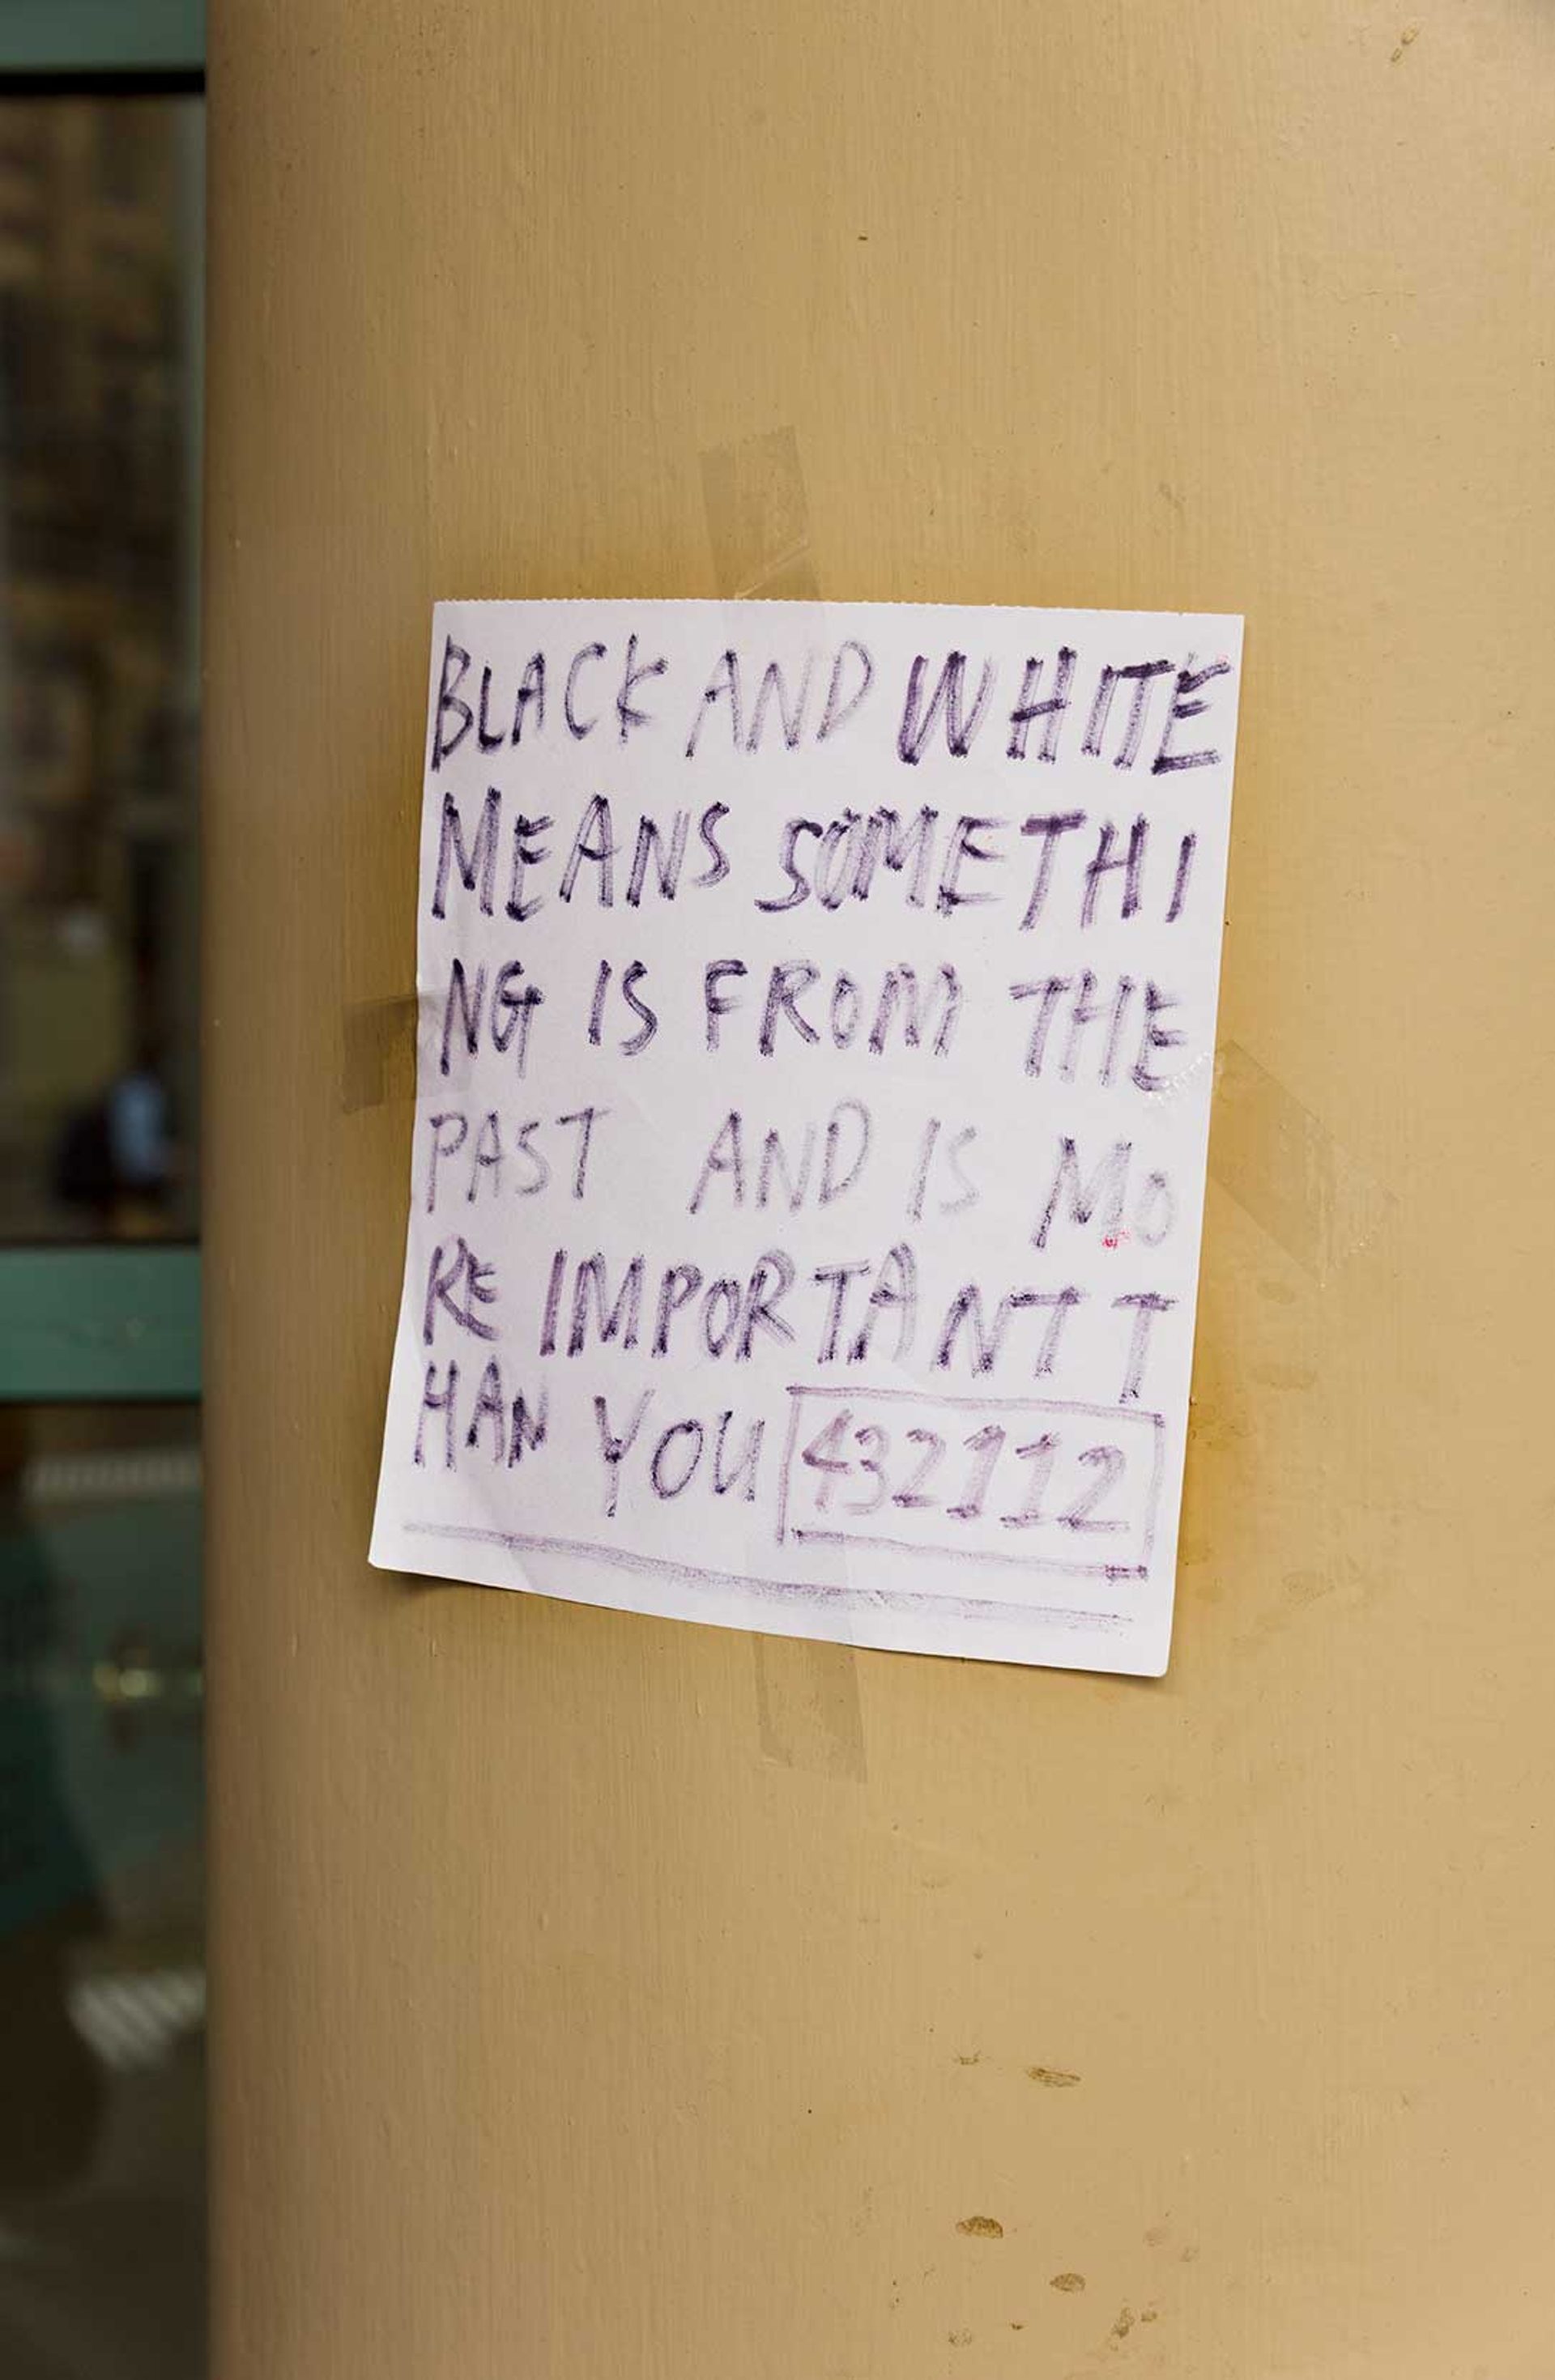 BLACK AND WHITE
MEANS SOMETHI
NG IS FROM THE
PAST AND IS MO
RE IMPORTANT T
HAN YOU 432112